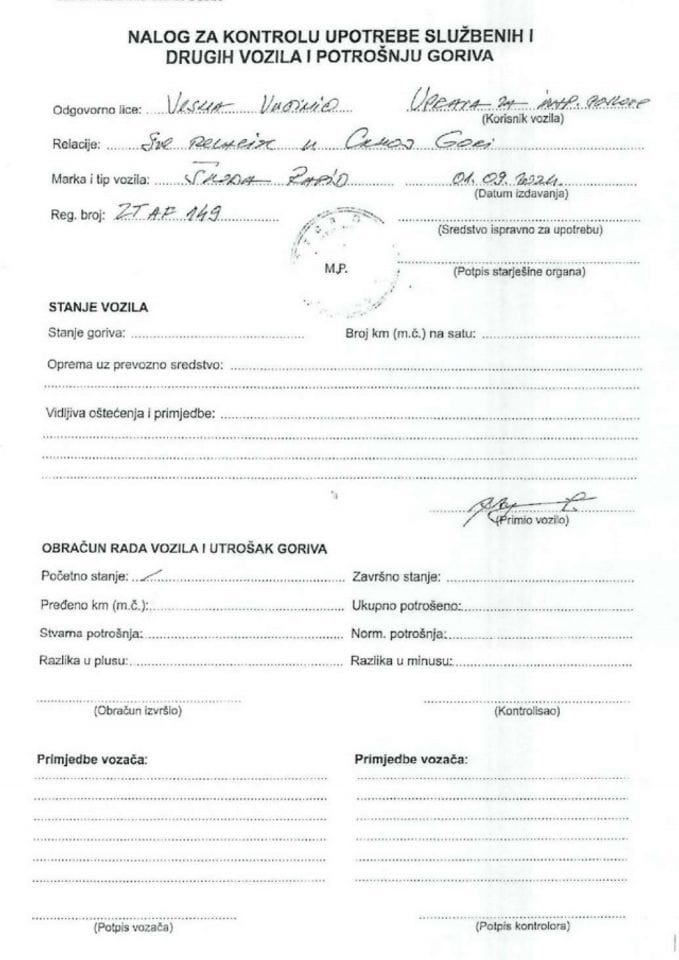 NALOG ZA KONTROLU UPOTREBE SLUŽBENIH I
DRUGIH VOZILA I POTROŠNJU GORIVA
Odgovorno lice: Uprava za insp. poslove
(Korisnik vozila)
Relacije: Sve relacije u Crnoj Gori
Marka i tip vozila: Škoda Rapid 01.09.2024.
(Datum izdavanja)
Reg. broj: ZT AF 149
(Sredstvo ispravno za upotrebu)
M.P.
(Potpis starješine organa)
STANJE VOZILA
Stanje goriva: Broj km (m.č.) na satu:
Oprema uz prevozno sredstvo:
Vidljiva oštećenja i primjedbe:
(Primio vozilo)
OBRAČUN RADA VOZILA I UTROŠAK GORIVA
Početno stanje: / Završno stanje:
Pređeno km (m.č.): Ukupno potrošeno:
Stvarna potrošnja: Norm. potrošnja:
Razlika u plusu: Razlika u minusu:
(Obračun izvršio) (Kontrolisao)
Primjedbe vozača: Primjedbe vozača:
(Potpis vozača) (Potpis kontrolora)